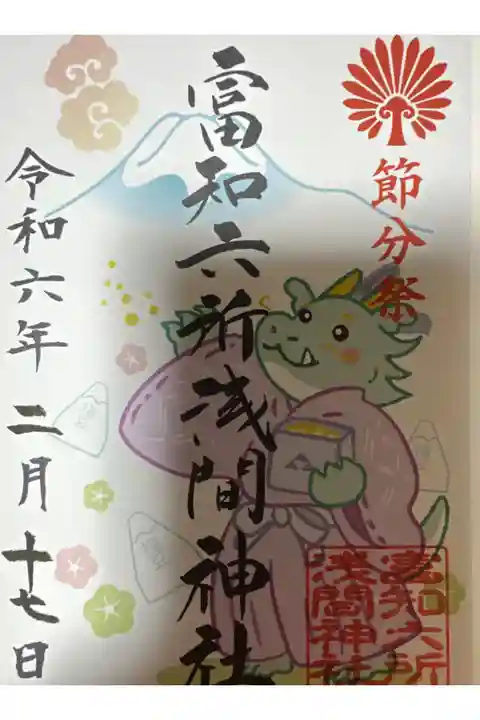 節分祭
富知六所浅間神社
令和六年 二月 十七日
富知六所
浅間神社